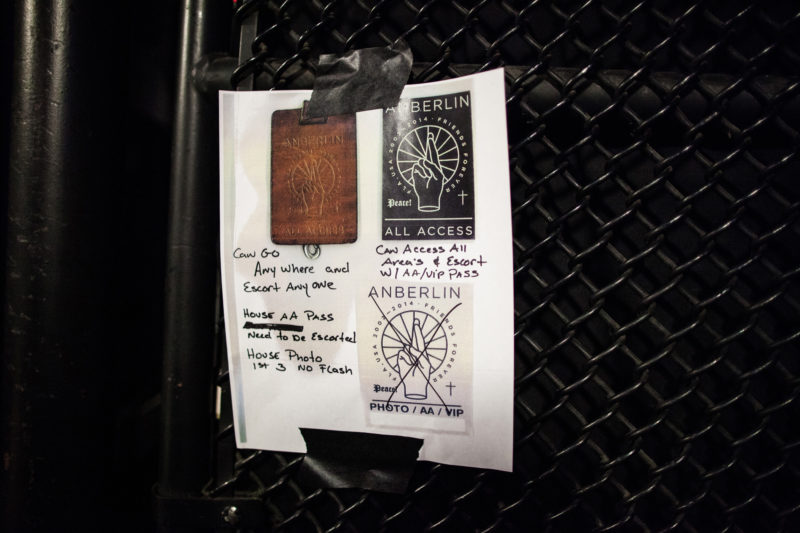 ANBERLIN
ALL ACCESS
Can Go
Any where and
Escort Any one
House AA Pass
Need to be Escorted
House Photo
1st 3 No Flash
ANBERLIN
FLA·USA 2002–2014 · FRIENDS FOREVER
Peace!
ALL ACCESS
Can Access All
Area's & Escort
W/ AA/Vip PASS
ANBERLIN
FLA·USA 2002–2014 · FRIENDS FOREVER
Peace!
PHOTO / AA / VIP